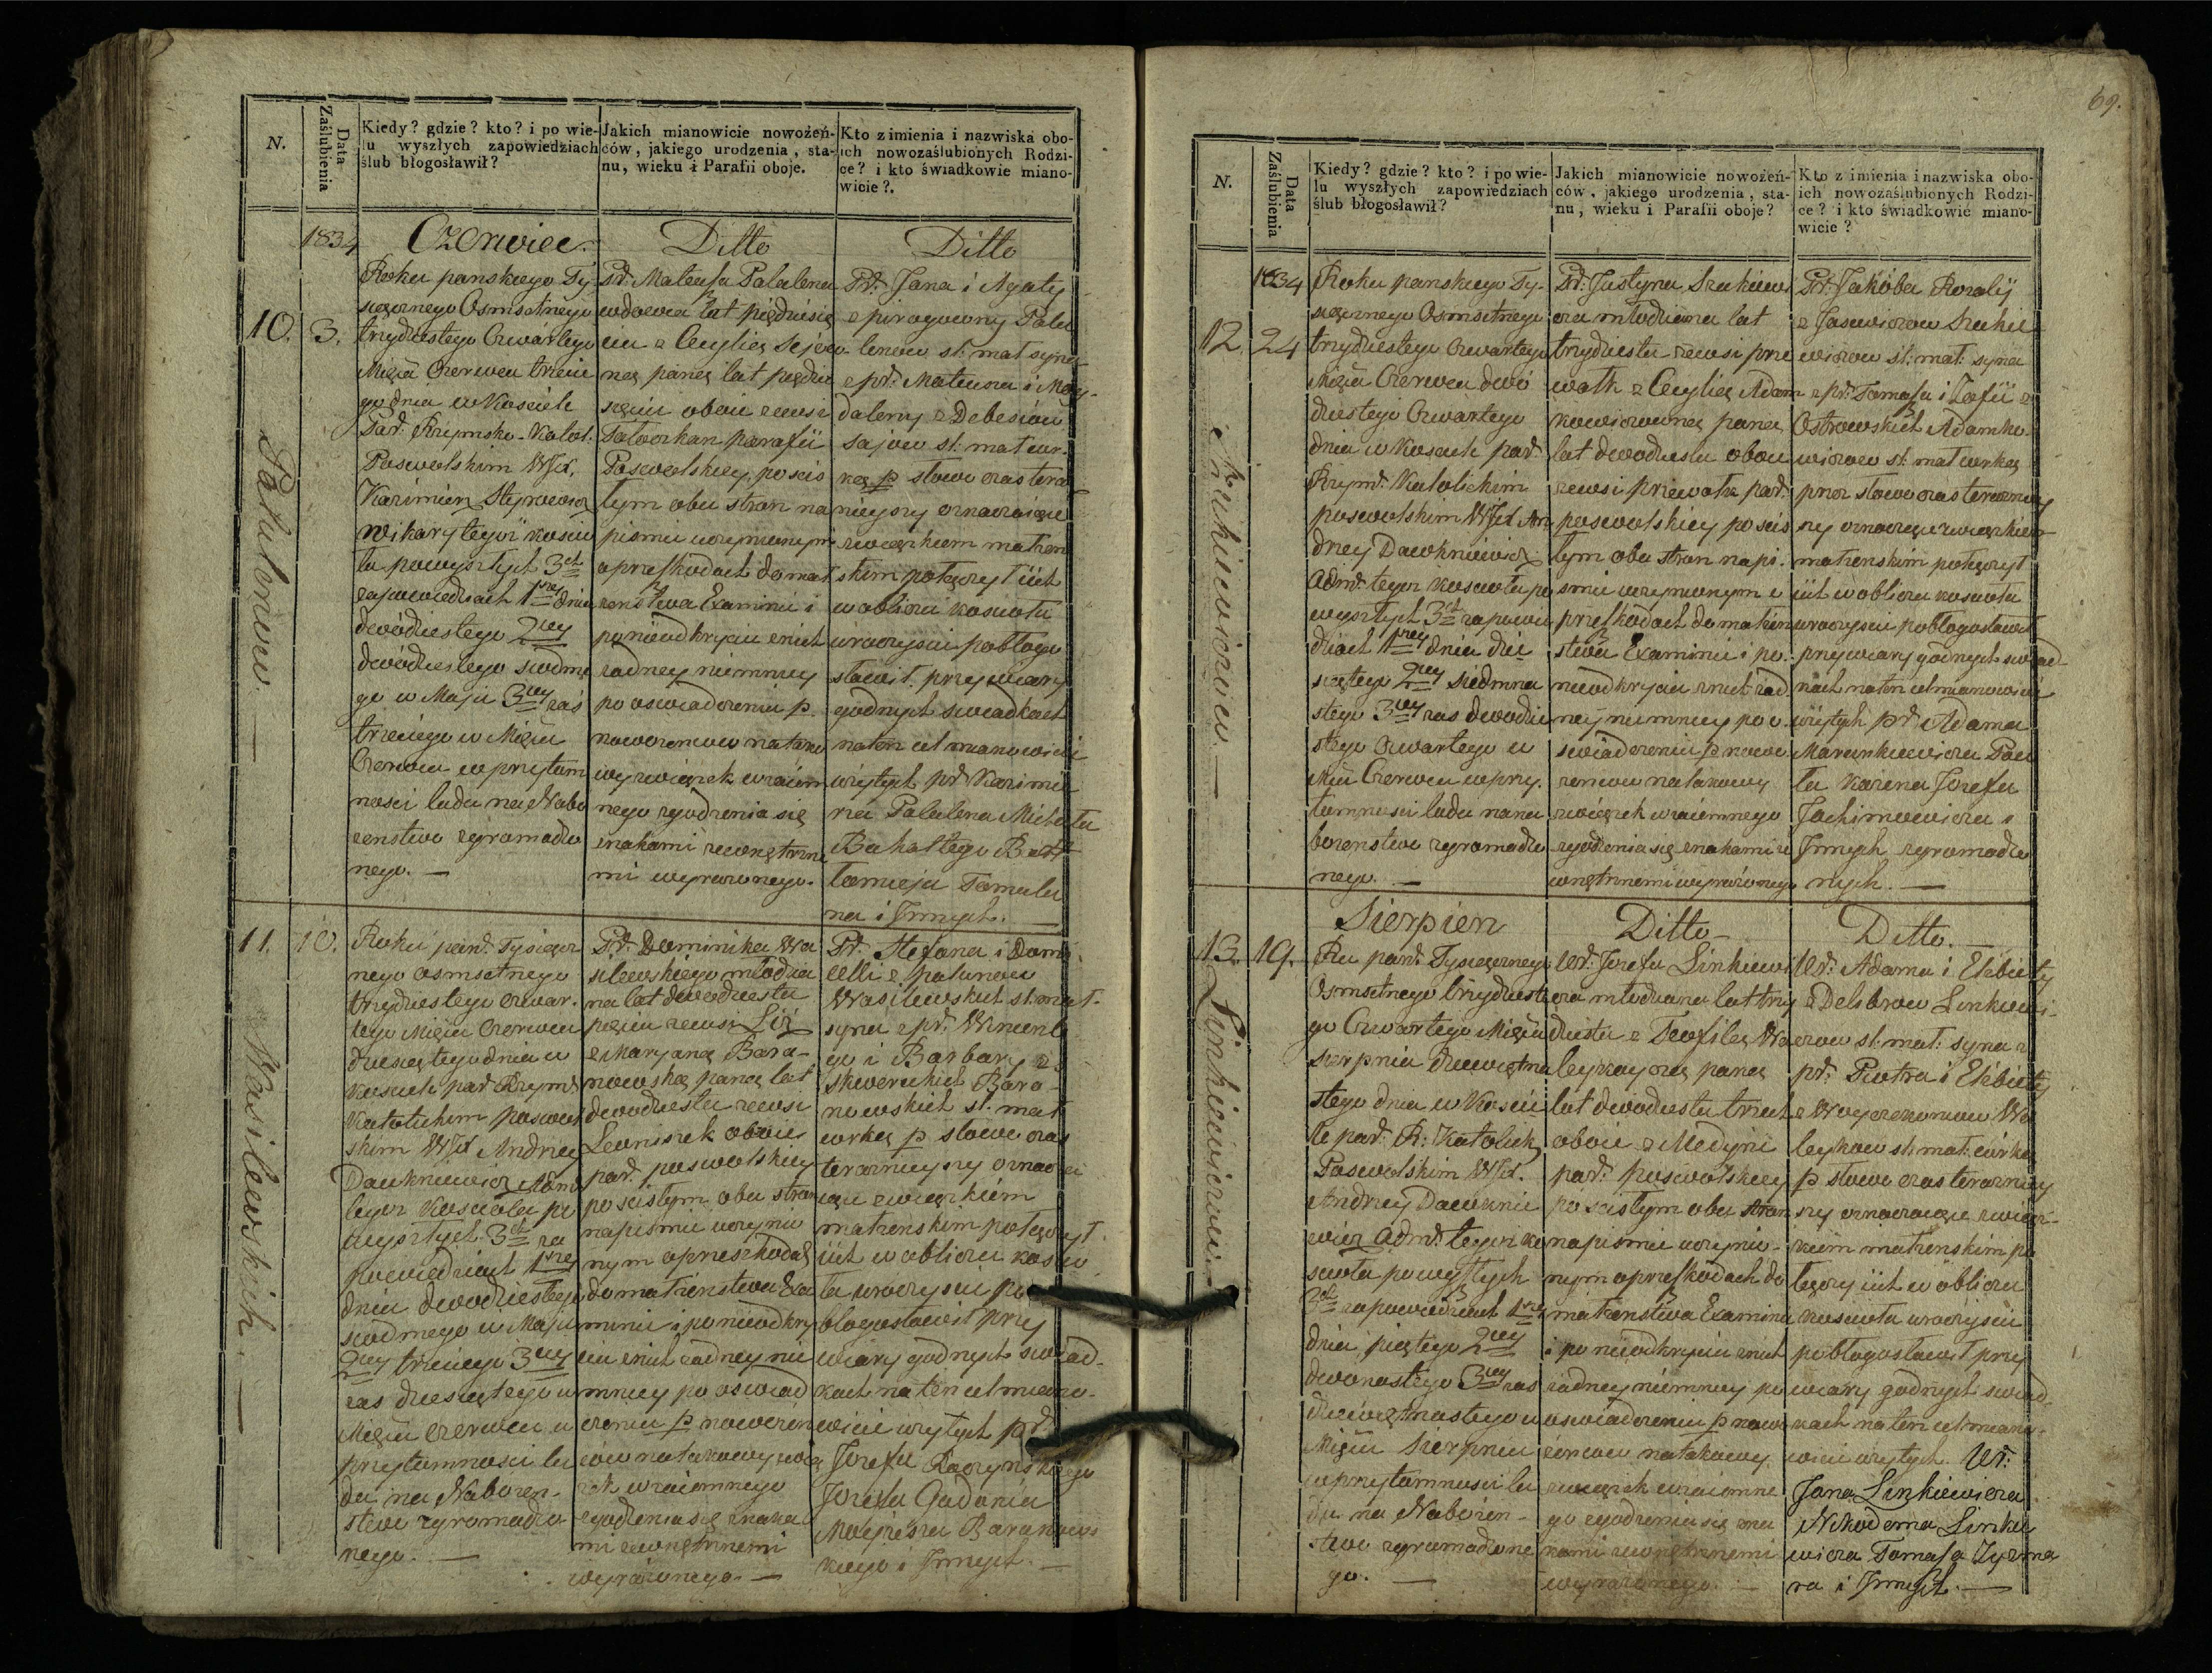 N.
Data Zaślubienia
Kiedy? gdzie? kto? i po wie-
lu wyszłych zapowiedziach
ślub błogosławił?
Jakich mianowicie nowożeń-
ców, jakiego urodzenia, sta-
nu, wieku i Parafii oboje.
Kto z imienia i nazwiska obo-
ich nowozaślubionych Rodzi-
ce? i kto świadkowie miano-
wicie?.
1834
10.
3.
Palulenow.
Czerwiec
Roku panskiego Ty-
sięcznego Osmsetnego
trzydziestego Czwartego
Mięsca Czerwca trzeci
go dnia w Kosciele
Par. Rzymsko-Katol.
Poswolskim WJX.
Kazimierz
wikary tegoż koscio
ła powyszłych 3ch
zapowiedziach 1szey dnia
dwódziestego 2giey
dwódziestego siodme
go w Maju 3ciey zaś
trzeciego w Mięsca
Czerwca w przytom
nosci ludu na Nabo
żenstwo zgromadzo
nego. —
Ditto
Pr. Mateusza Palulena
wdowca lat pięćdziesię
ciu z Cecylią Sejow-
ną panną lat pięćdzie
sięciu oboie zewsi
Tatorkan parafii
Poswolskiey, po scis
łym obu stron na
pismie uczynionym
o przeszkodach do mał
żenstwa Examinie i
po nieodkryciu z nich
żadney niemniey
po oswiadczeniu p.
nowożencow na tako
wy związek wzaiem
nego zgodzenia się
znakami zewnętrzne
mi wyrażonego.
Ditto
Pr. Jana i Agaty
z pirogowny Palu
lenow st: mał syna
z pr. Mateusza i Mag-
daleny z Debesiow
Sajow st: mał cor-
ką p słowa czasu tera
znieyszy oznaczaiące
związkiem małżen
skim połączył iich
w obliczu koscioła
uroczyscie pobłogo
sławił. przy wiary
godnych swiadkach
na ten cel mianowicie
użytych pr. Kazimie
rza Palulena Michała
Bart
łomieja Tamule
na i Innych.
11.
10.
Wasilewskich
Roku pans. Tysięcz
nego osmsetnego
trzydziestego czwar-
tego Mięsca Czerwca
dziesiątego dnia w
kosciele par Rzyms.
Katolickim poswol
skim WJX Andrzey
Daukniewicz Adm.
tegoż koscioła po
wyszłych 3ch za
powiedziach 1szey
dnia dwodziestego
siodmego w Maju
2giey trzeciego 3ciey
zas dziesiątego w
Mięscu Czerwcu w
przytomnosci lu
du na Nabożen-
stwo zgromadzo
nego. —
Pr. Dominika Wa
silewskiego młodzia
na lat dwodziestu
pięciu zewsi
z Maryaną Bara-
nowską panną lat
dwodziestu zewsi
Leoniszek oboie
par. poswolskiey
po scisłym obu stron
na pismie uczynio
nym o przeszkodach
do małżenstwa Exa
minie i po nieodkry
ciu z nich żadney nie
mniey po oswiad
czeniu p nowożen
ców na takowy zwią
zek wzaiemnego
zgodzenia się znaka
mi zewnętrznemi
wyrażonego. —
Pr. Stefana i Dom
icelli z
Wasilewskich st: mał-
syna z pr. Wincente
go i Barbary z
Bara-
nowskich st. mał
corką p słowa czasu
teraznieyszy oznacza
iące związkiem
małżenskim połączył
iich w obliczu koscio
ła uroczyscie po
błogosławił przy
wiary godnych swiad-
kach na ten cel miano-
wicie użytych pr.
Jozefa Raczynskiego
Jozefa Gadonia
Moyżesza Baranows
kiego i Innych. —
69.
N.
Data Zaślubienia
Kiedy? gdzie? kto? i po wie-
lu wyszłych zapowiedziach
ślub błogosławił?
Jakich mianowicie nowożeń-
ców, jakiego urodzenia, sta-
nu, wieku i Parafii oboje?
Kto z imienia i nazwiska obo-
ich nowozaślubionych Rodzi-
ce? i kto świadkowie miano-
wicie?
1834
12.
24
Roku panskiego Ty-
sięcznego Osmsetnego
trzydziestego Czwartego
Mięsca Czerwca dwó
dziestego Czwartego
dnia w Kosciele par.
Rzyms. Katolickim
poswolskim WJX An
drzey Dawkniewicz
Adm. tegoż koscioła po
wyszłych 3ch zapowie
dziach 1szey dnia dzie
siątego 2giey siedmna
stego 3ciey zas dwodzie
stego Czwartego w
Mcu Czerwcu w przy-
tomnosci ludu na na
bożenstwo zgromadzo
nego. —
Pr. Justyna Szukiewi
cza młodziana lat
trzydziestu zewsi prze
wałk z Cecylią Adam
kowiczowną panną
lat dwodziestu oboie
zewsi przewałk par.
poswolskiey po scis
łym obu stron na pi-
smie uczynionym o
przeszkodach do małżen
stwa Examinie i po-
nieodkryciu z nich żad
ney niemniey po o-
swiadczeniu p nowo
żencow na takowy
związek wzaiemnego
zgodzenia się znakami ze
wnętrznemi wyrażonego
Pr. Jakóba Rozalij
z Jasewiczow Szukie
wiczow st: mał: syna
z pr. Tomasza i Zofii z
Ostrowskich Adamko-
wiczow st: mał corką
przez słowa czasu teraznie
szy oznaczaiące związkiem
małżenskim połączył
iich w obliczu koscioła
uroczyscie pobłogosławił
przy wiary godnych swiad
kach na ten cel mianowicie
użytych pr. Adama
Marcinkiewicza Paw
ła Jozefa
Jochimowicza i
Innych zgromadzo
nych. —
13.
19.
Linkiewiczow
Sierpien
Ru pans. Tysięcznego
Osmsetnego trzydzieste
go Czwartego Mięsca
sierpnia dziewiętna
stego dnia w Koscie
le par. R: Katolick
Poswolskim WJX.
Andrzey Dawknie
wicz Adm. tegoż ko
scioła po wyszłych
3ch zapowiedziach 1szey
dnia piątego 2giey
dwonastego 3ciey zas
dziewiętnastego w
Mięscu Sierpniu
w przytomnosci lu
du na Nabożen-
stwo zgromadzone
go. —
Ditto
Ur. Jozefa Linkiewi
cza młodziana lat trzy
dziestu z Teofilą Wa
leykayczą panną
lat dwodziestu trzech
oboie z Medyni
par. poswolskiey
po scisłym obu stron
na pismie uczynio-
nym o przeszkodach do
małżenstwa Examinie
i po nieodkryciu z nich
żadney niemniey po
oswiadczeniu p nowo
żencow na takowy
związek wzaiemne
go zgodzenia się zna
kami zewnętrznemi
wyrażonego. —
Ditto.
Ur. Adama i Elżbiety
z Linkiewi-
czow st: mał: syna z
pr. Piotra i Elżbiety
z Woyczekonow Wa
leykow st: mał: córką
p słowa czasu terazniey
szy oznaczaiące związ-
kiem małżenskim po
łączył iich w obliczu
koscioła uroczyscie
pobłogosławił przy
wiary godnych swiad
kach na ten cel miano-
wicie użytych. Ur.
Jana Linkiewicza
Nikodema Linkie
wicza Tomasza
ra i Innych. —